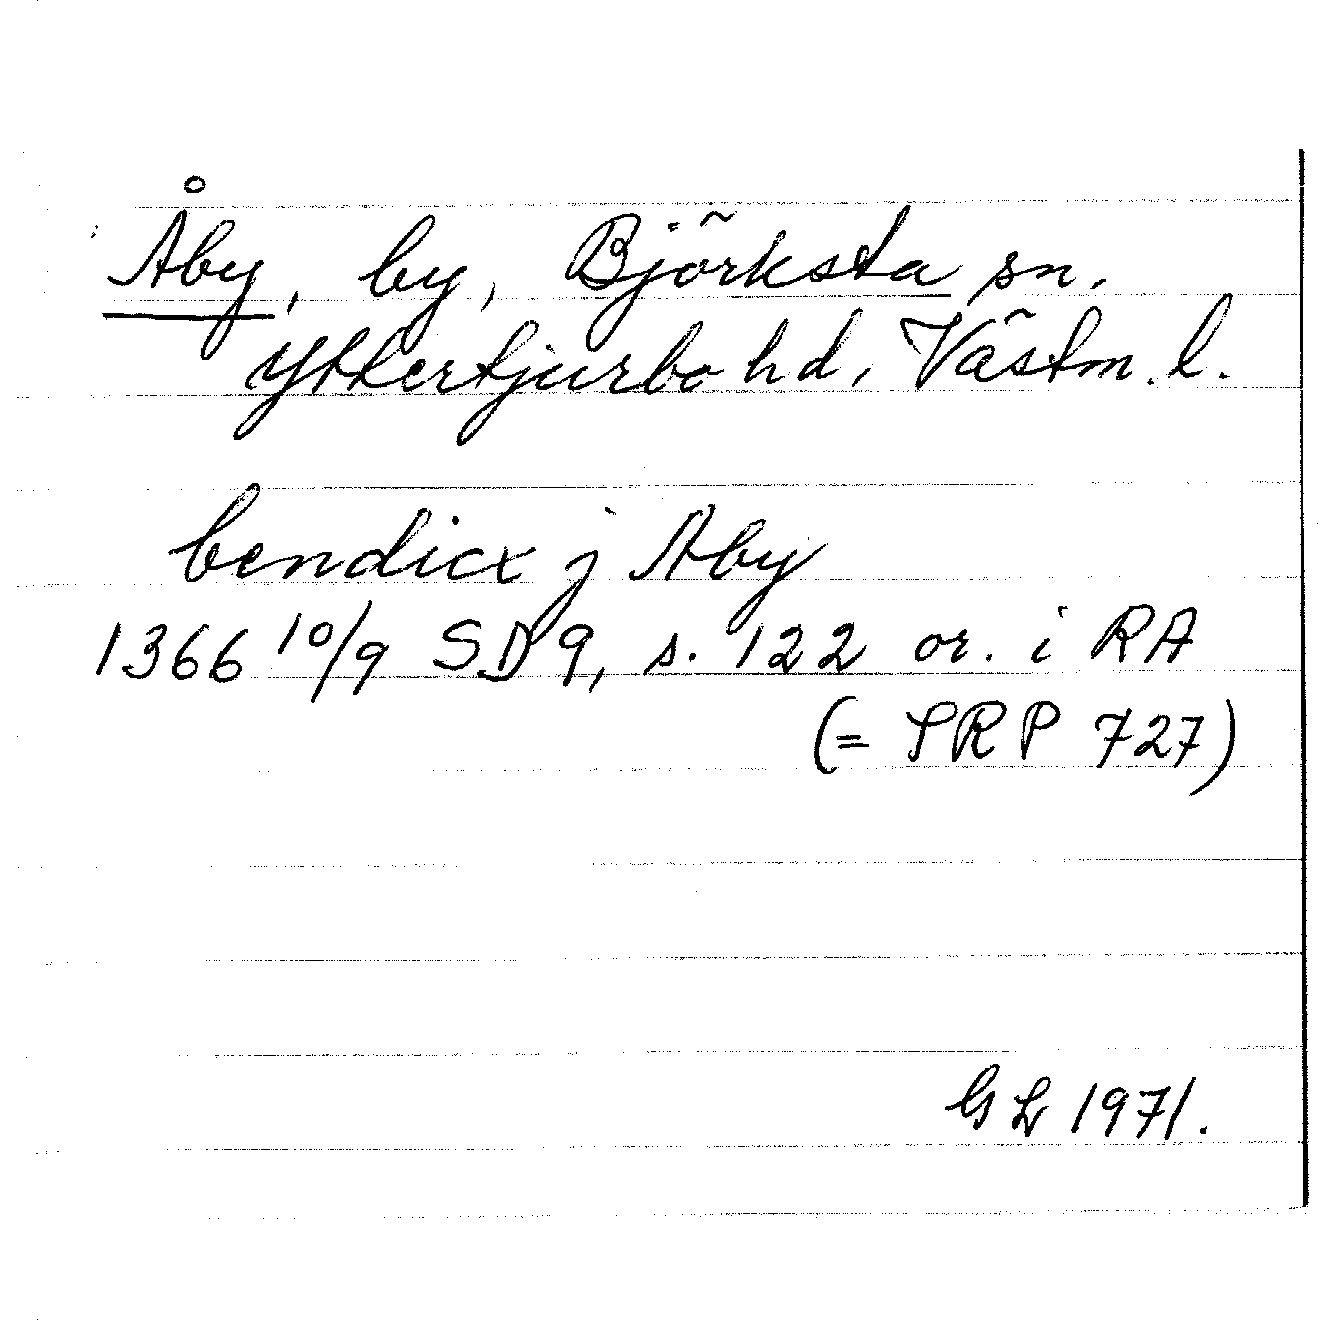 Åby, by, Björksta sn.
Yttertjurbo hd, Västm. l.
bendicx j Aby
1366 10/9 SD 9, s. 122 or. i RA
(= SRP 727)
GL 1971.